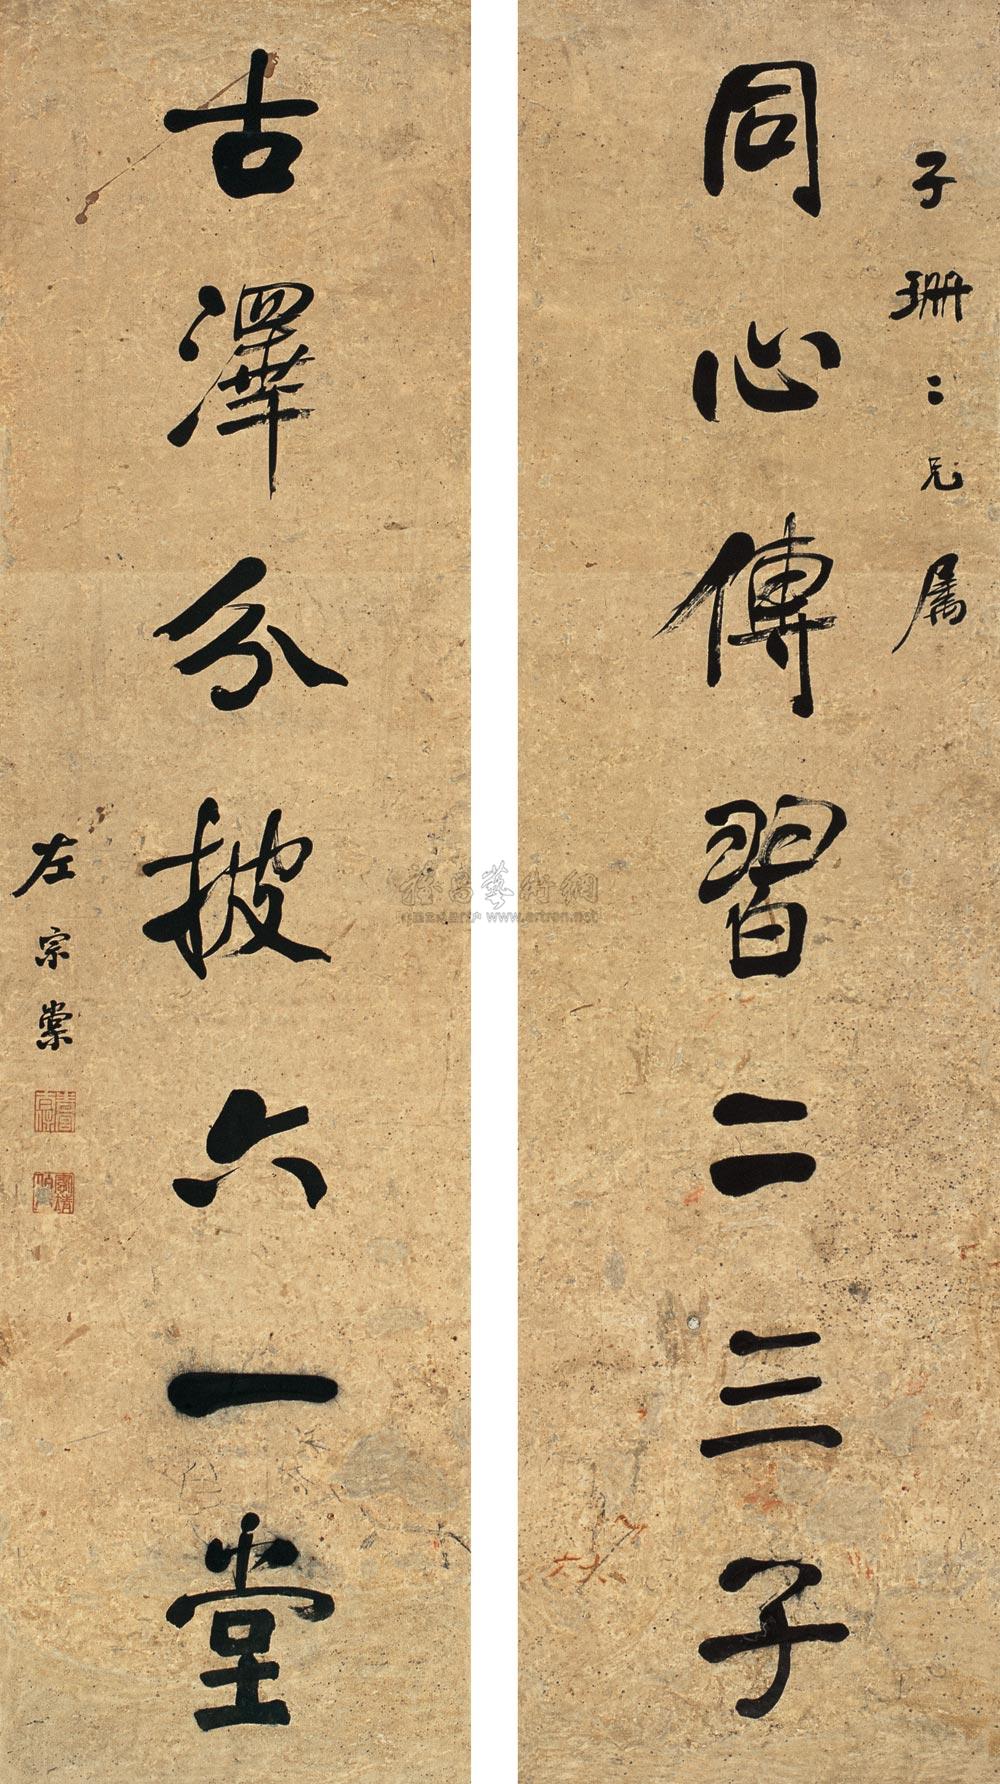 子珊二兄属
同心傳習二三子
古澤分披六一堂
左宗棠
www.artron.net